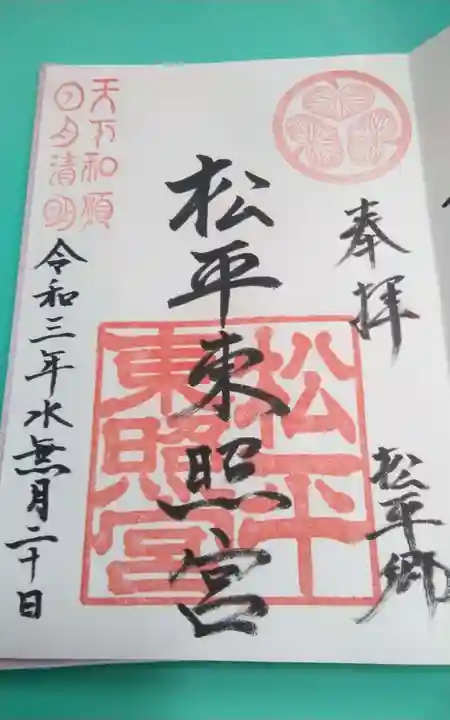 奉拝
松平郷
松平東照宮
松平
東照宮
天下和順
日月清明
令和三年水無月二十日